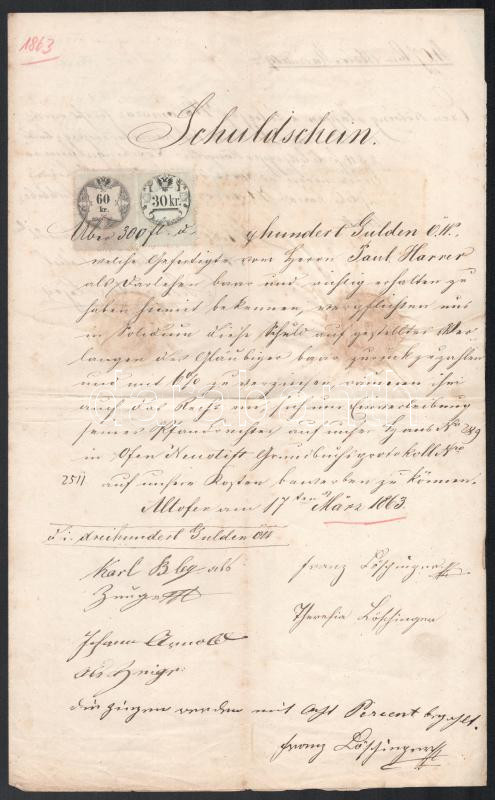 1863
Schuldschein.
60 kr.
30 kr.
Über 300 fl. d. hundert Gulden Ö.W.,
welche Gefertigte vom Herrn Paul Harrer
als Darlehen baar und richtig erhalten zu
haben hiemit bekennen, verpflichten uns
in Solidum diese Schuld auf gestelltes Ver
langen des Gläubiger baar zurückzuzahlen
und mit 6% zu verzinsen räumen ihm
auch das Recht ein, sich um Einverleibung
seines Pfandrechtes auf unser Haus Nro 289
in Ofen Neustift Grundbuchsprotokoll Nro
2511 auf unsere Kosten bewerben zu können.
Altofen am 17ten März 1863.
d. i. dreihundert Gulden ÖW
Karl als
Zeuge
Franz Löschinger
Theresia Löschinger
Johann Arnold
als Zeuge
die Zinzen werden mit acht Percent bezahlt.
Franz Löschinger